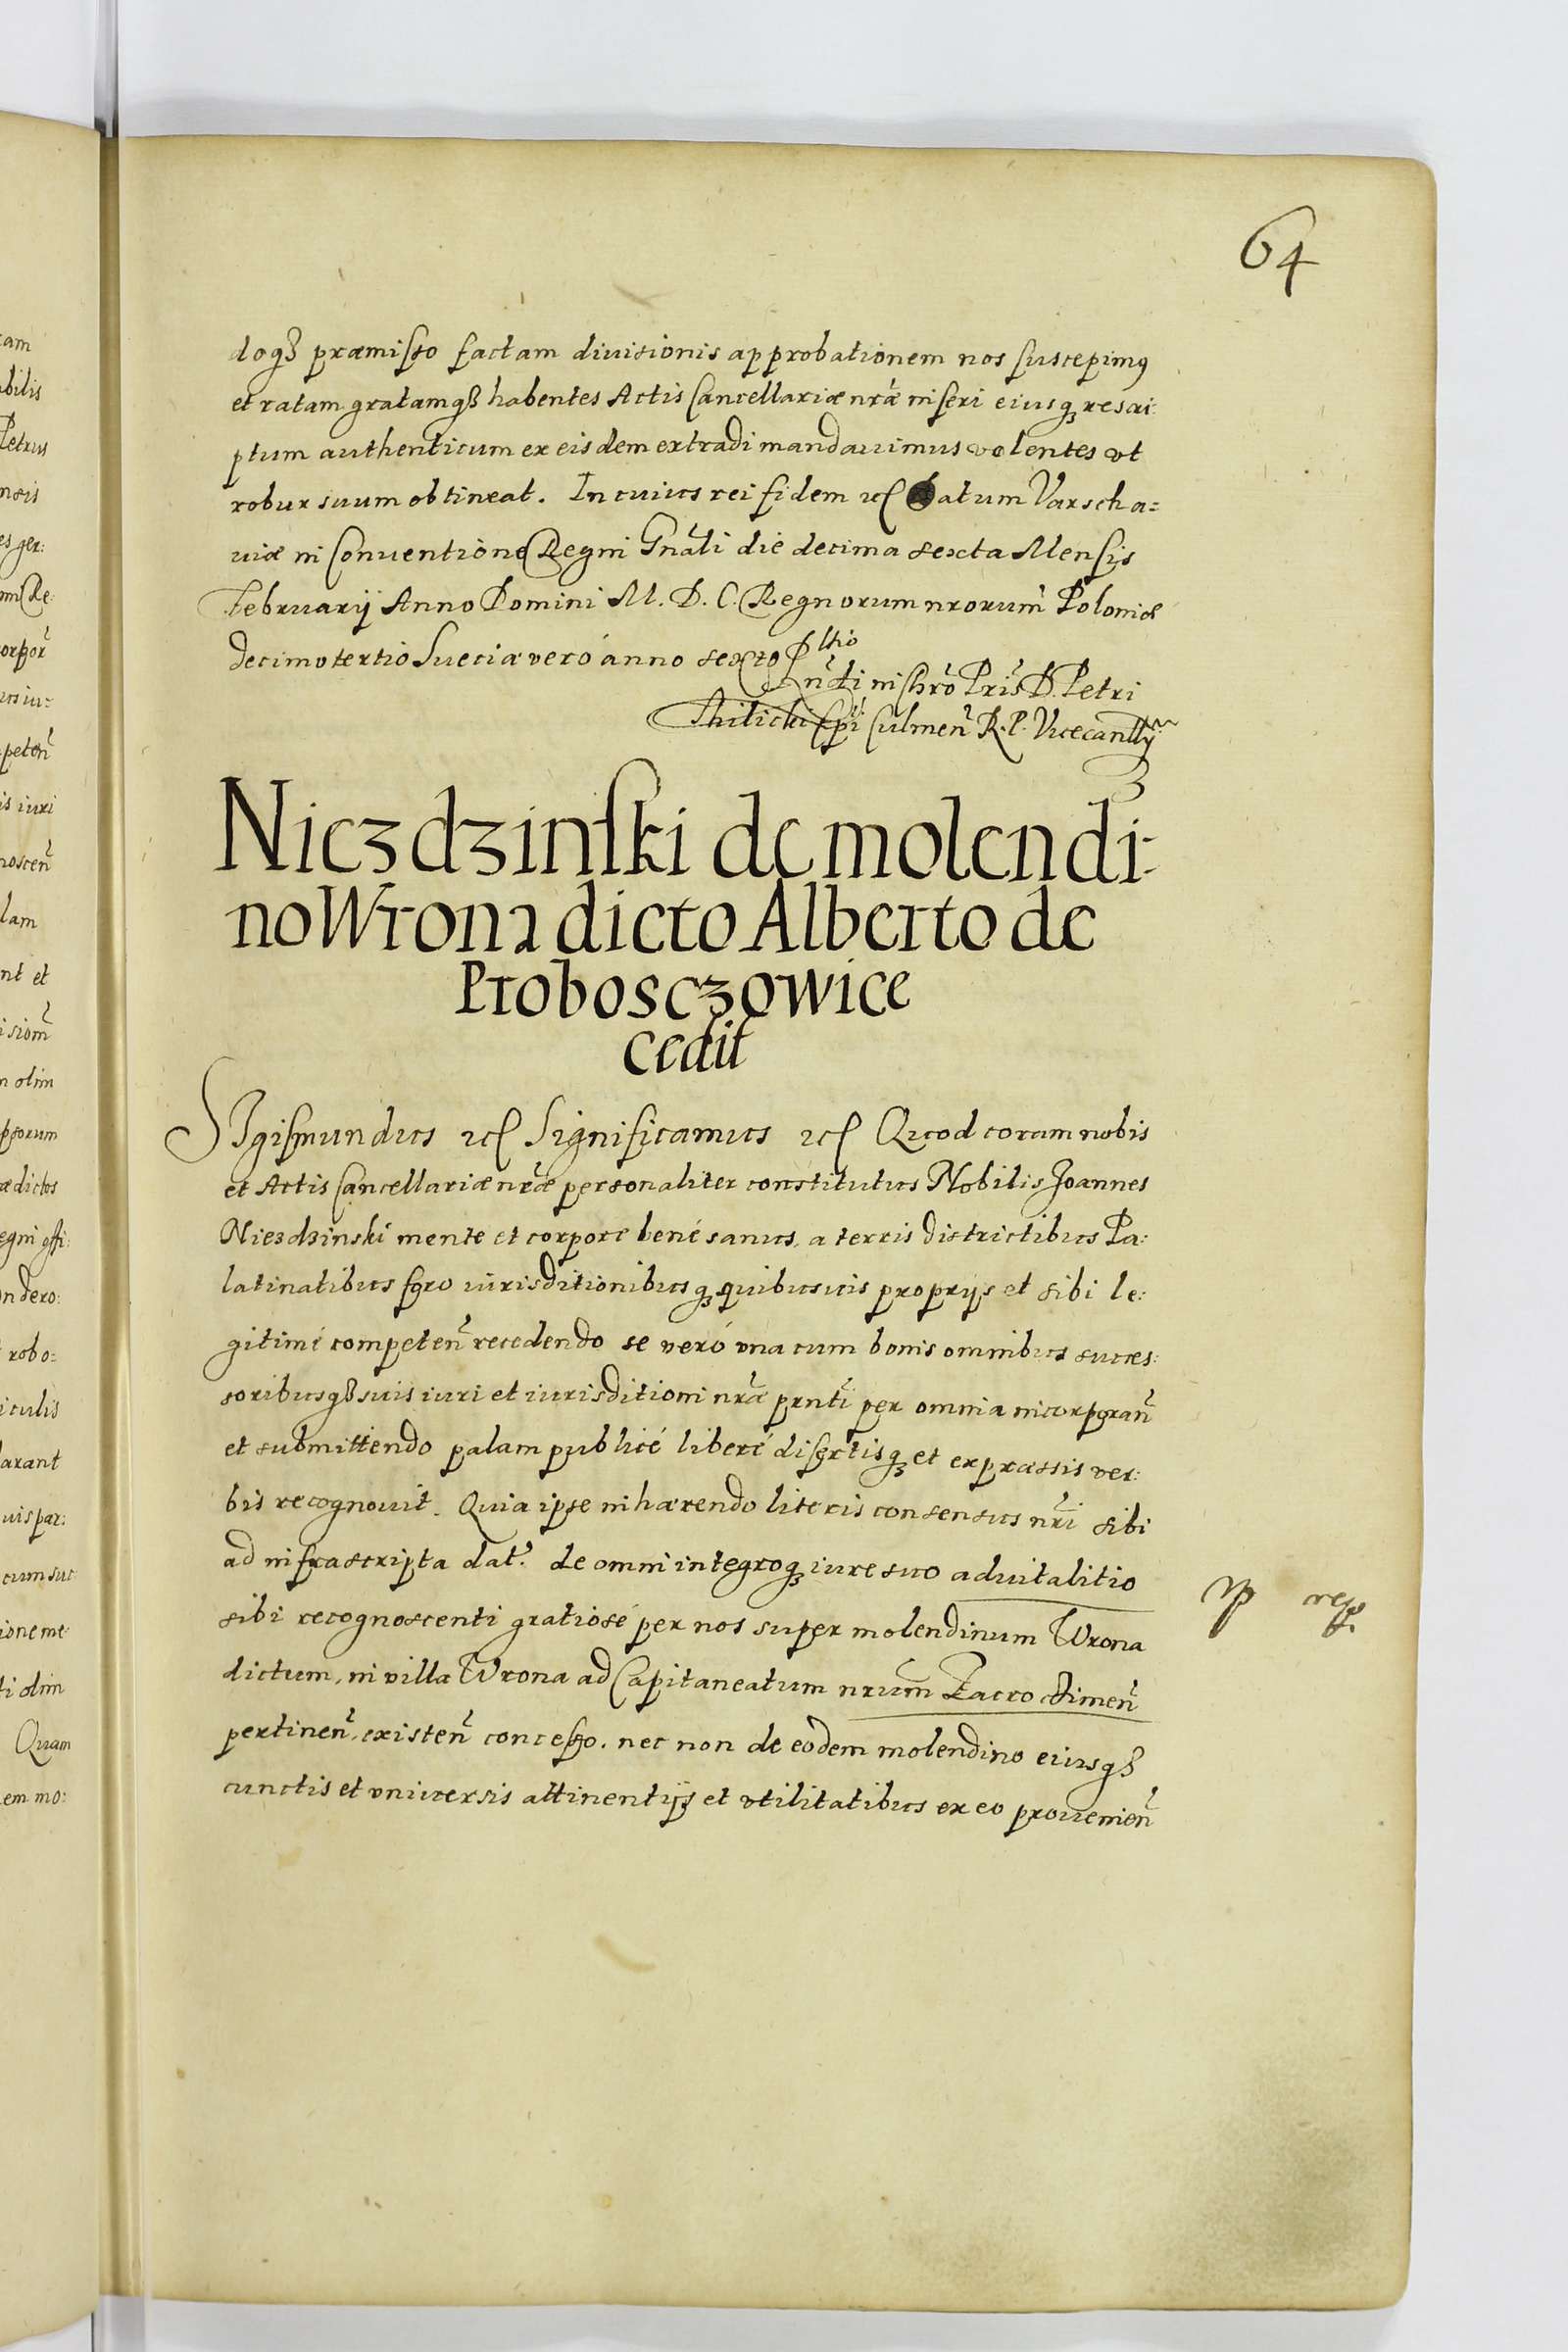 64
doq3 præmisso factam diuisionis approbationem nos suscepimus
et ratam gratamq3 habentes Actis Cancellariæ nrae inseri eiusq3 rescri:
ptum authenticum ex eisdem extradi mandauimus volentes vt
robur suum obtineat. In cuius rei fidem etc Datum Varscha=
uiæ in Conuentione Regni Gnali die decima sexta Mensis
Februarij Anno Domini M. D. C. Regnorum nrorum Poloniæ
decimotertio Sueciæ veró anno sexto
Petri
Tilicki Epi Culmen R. P. Vicecan
Niezdzinski de molendi-
no Wrona dicto Alberto de
Probosczowice
cedit
SIgismundus etc Significamus etc Quod coram nobis
et Actis Cancellariæ nræ personaliter constitutus Nobilis Joannes
Niezdzinski mente et corpore bené sanus, a terris districtibus Pa:
latinatibus foro iurisditionibusq3 quibusuis proprijs et sibi le:
gitimé competen recedendo se veró vna cum bonis omnibus succes:
soribusq3 suis iuri et iurisditioni nræ prnti per omnia incorporan
et submittendo palam publicé liberé disertisq3 et expræssis ver:
bis recognouit. Quia ipse inhærendo literis consensus nri sibi
ad infrascripta dat. de omni integroq3 iure suo aduitalitio
sibi recognoscenti gratiosé per nos super molendinum Wrona
dictum, in villa Wrona ad Capitaneatum nrum Zacroctimen
pertinen, existen concesso. nec non de eodem molendino eiusq3
cunctis et vniuersis attinentijs et vtilitatibus ex eo prouenien